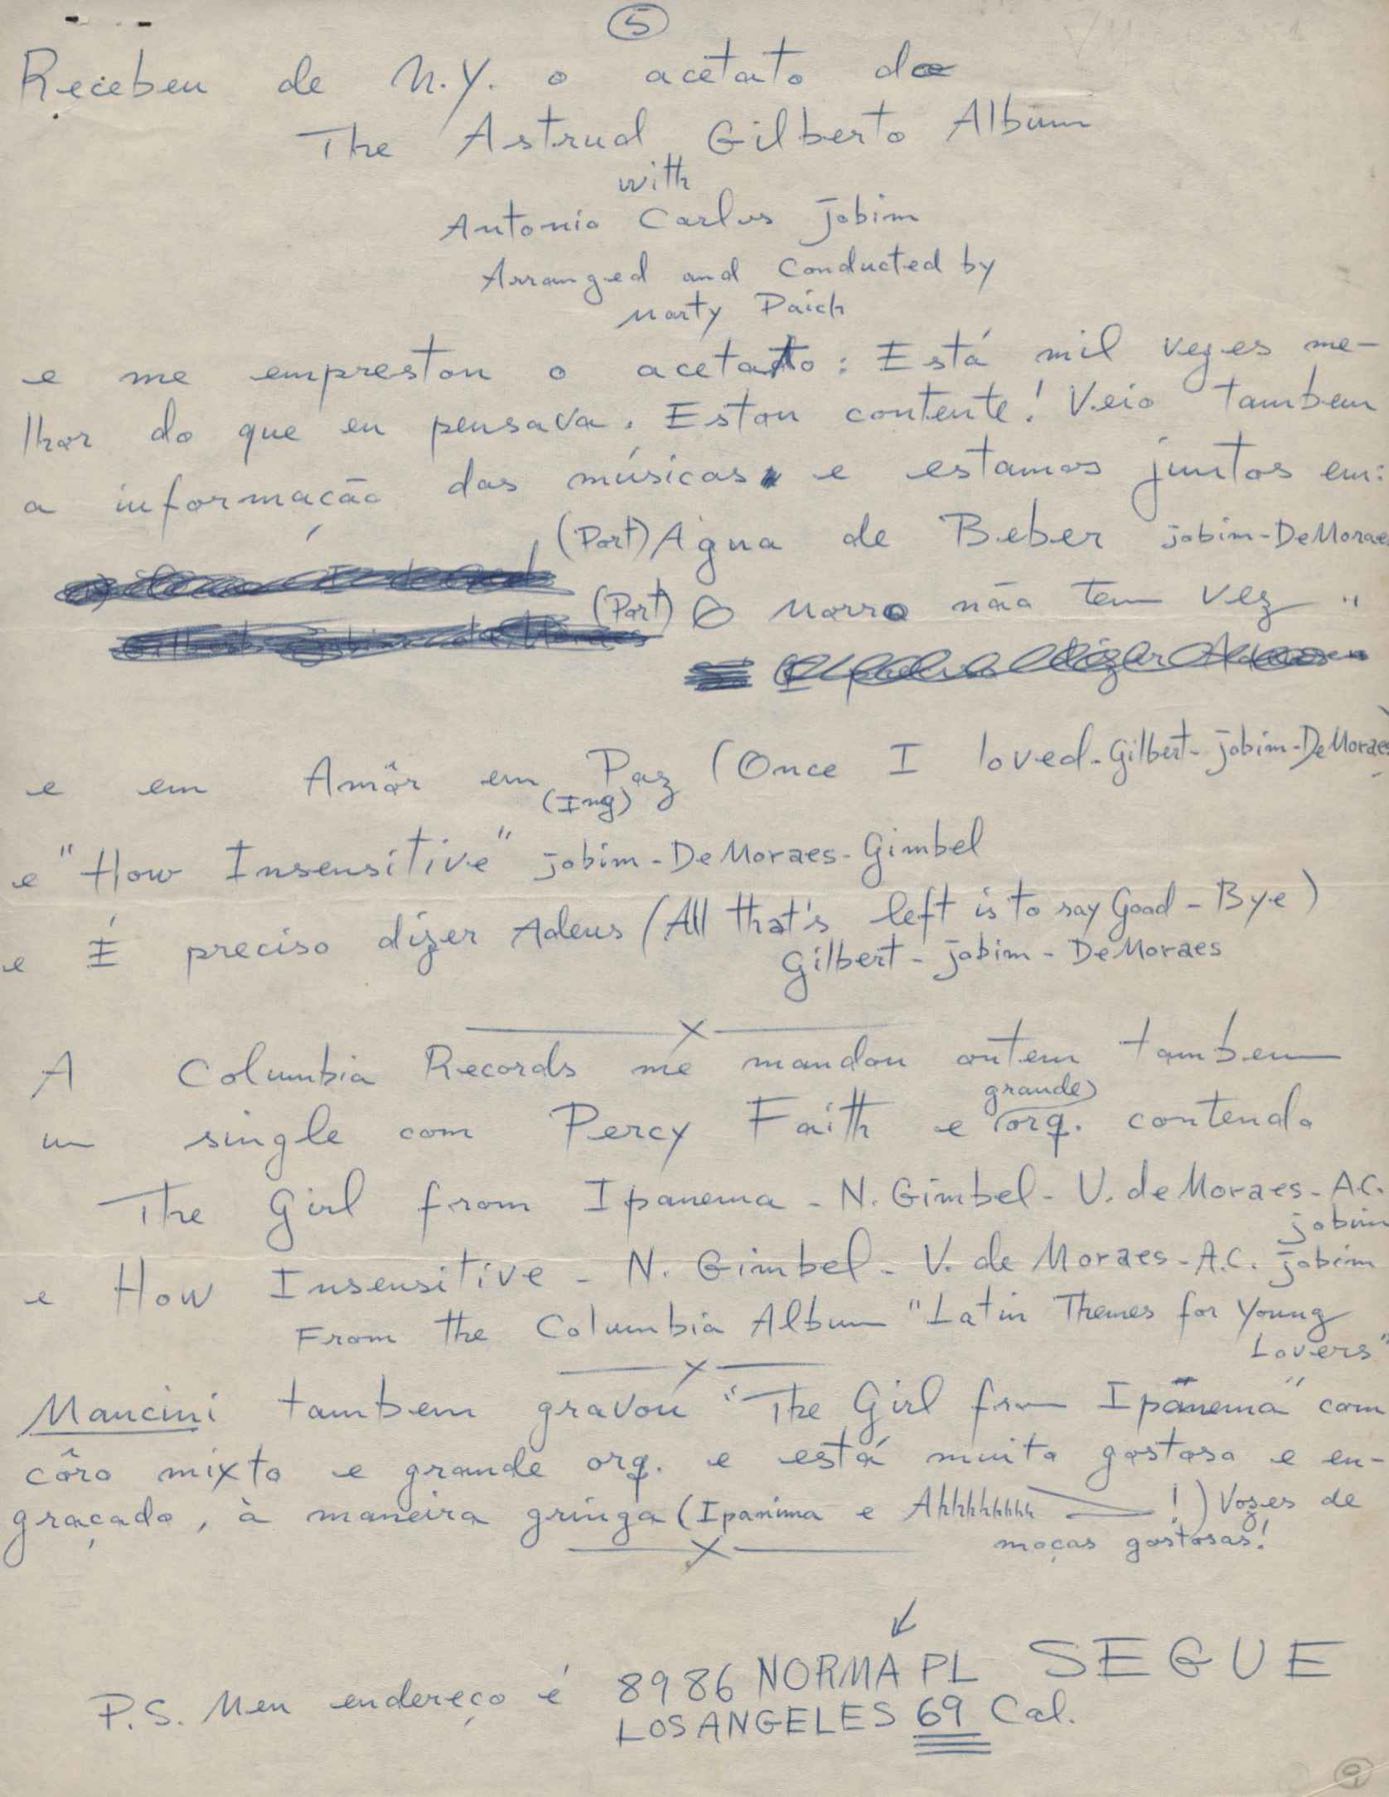 5
Recebeu de N.Y. o acetato do
The Astrud Gilberto Album
with
Antonio Carlos Jobim
Arranged and Conducted by
Marty Paich
e me emprestou o acetato: Está mil vezes me-
lhor do que eu pensava. Estou contente! Veio tambem
a informação das músicas e estamos juntos em:
(Port) Água de Beber Jobim-DeMoraes
(Port) O Morro não tem vez "
e em Amôr em Paz (Once I loved-Gilbert-Jobim-DeMoraes)
(Ing)
e "How Insensitive" Jobim-DeMoraes-Gimbel
e É preciso dizer Adeus (All that's left is to say Good-Bye)
Gilbert-Jobim-DeMoraes
X
A Columbia Records me mandou ontem tambem
um single com Percy Faith e grande orq. contendo
The Girl from Ipanema - N. Gimbel - V. de Moraes - A.C.
Jobim
e How Insensitive - N. Gimbel - V. de Moraes - A.C. Jobim
From the Columbia Album "Latin Themes for Young
Lovers"
X
Mancini tambem gravou "The Girl from Ipanema" com
côro mixto e grande orq. e está muito gostoso e en-
graçado, à maneira gringa (Ipanima e Ahhhhhhhh !) Vozes de
moças gostosas!
X
SEGUE
P.S. Meu endereço é 8986 NORMA PL
LOS ANGELES 69 Cal.
9